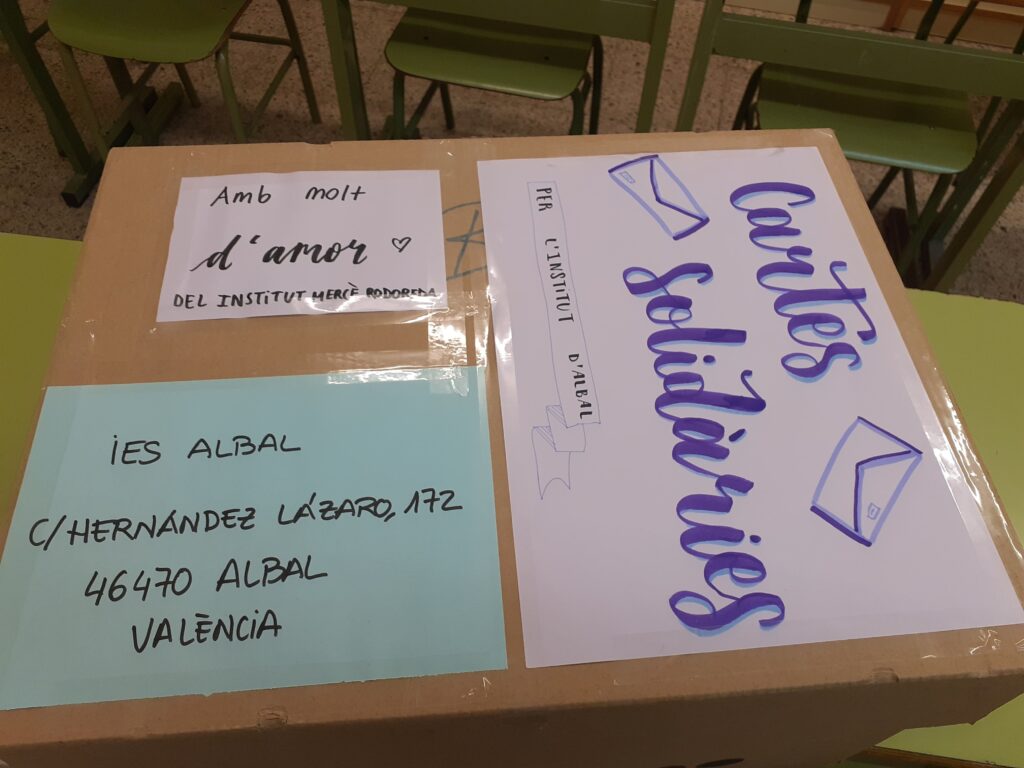 Amb molt
d'amor
DEL INSTITUT MERCÈ RODOREDA
IES ALBAL
C/HERNÁNDEZ LÁZARO, 172
46470 ALBAL
VALÈNCIA
Cartes
solidàries
PER L'INSTITUT D'ALBAL